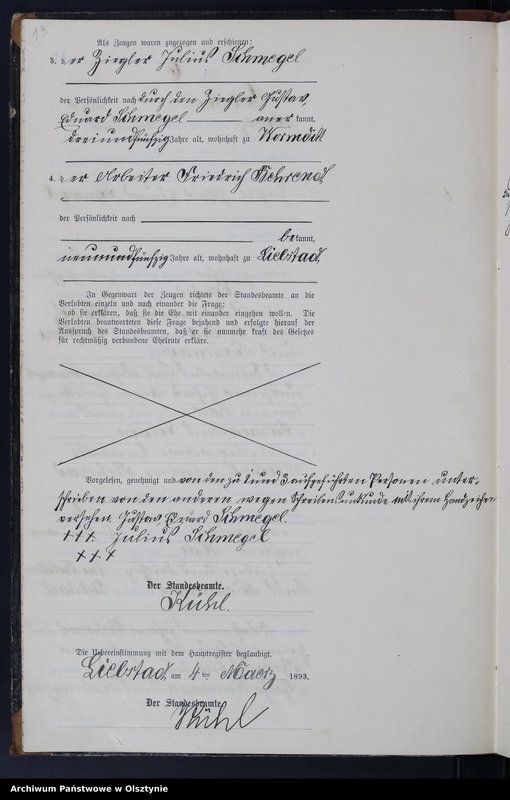 13
Als Zeugen waren zugezogen und erschienen:
3. der Ziegler Julius Schmegel
der Persönlichkeit nach durch den Ziegler Gustav
Eduard Schmegel anerkannt,
dreiundfünfzig Jahre alt, wohnhaft zu Wormditt
4. der Arbeiter Friedrich Behrendt
der Persönlichkeit nach
bekannt,
neunundfünfzig Jahre alt, wohnhaft zu Liebstadt
In Gegenwart der Zeugen richtete der Standesbeamte an die
Verlobten einzeln und nach einander die Frage:
ob sie erklären, daß sie die Ehe mit einander eingehen wollen. Die
Verlobten beantworteten diese Frage bejahend und erfolgte hierauf der
Ausspruch des Standesbeamten, daß er sie nunmehr kraft des Gesetzes
für rechtmäßig verbundene Eheleute erkläre.
Vorgelesen, genehmigt und von den zu 1 und 3 aufgeführten Personen unter-
schrieben, von den anderen wegen Schreibensunkunde mit ihrem Handzeichen
versehen. Gustav Eduard Schmegel.
+++ Julius Schmegel
+++
Der Standesbeamte.
Kühl.
Die Uebereinstimmung mit dem Hauptregister beglaubigt.
Liebstadt, am 4 ten Maerz 1893.
Der Standesbeamte.
Kühl
Archiwum Państwowe w Olsztynie